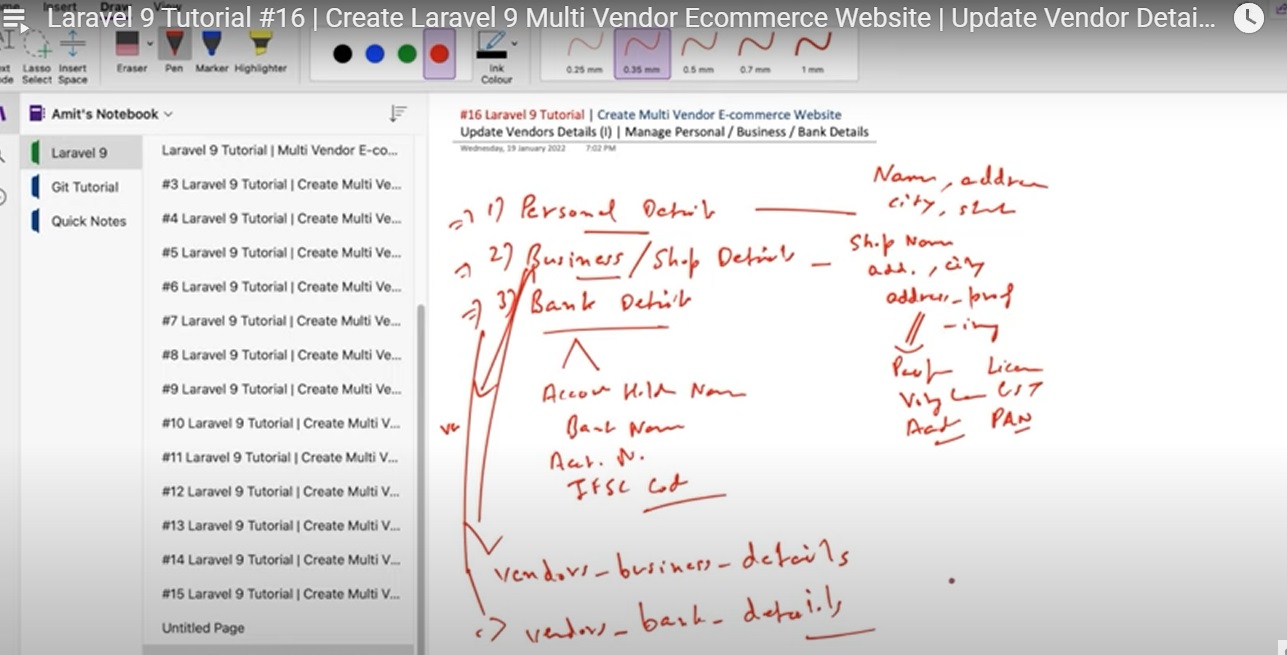 Insert Draw View
Laravel 9 Tutorial #16 | Create Laravel 9 Multi Vendor Ecommerce Website | Update Vendor Detai...
Lasso Select
Insert Space
Eraser
Pen
Marker
Highlighter
Ink Colour
0.25 mm
0.35 mm
0.5 mm
0.7 mm
1 mm
Amit's Notebook
Laravel 9
Git Tutorial
Quick Notes
Laravel 9 Tutorial | Multi Vendor E-co...
#3 Laravel 9 Tutorial | Create Multi Ve...
#4 Laravel 9 Tutorial | Create Multi Ve...
#5 Laravel 9 Tutorial | Create Multi Ve...
#6 Laravel 9 Tutorial | Create Multi Ve...
#7 Laravel 9 Tutorial | Create Multi Ve...
#8 Laravel 9 Tutorial | Create Multi Ve...
#9 Laravel 9 Tutorial | Create Multi Ve...
#10 Laravel 9 Tutorial | Create Multi V...
#11 Laravel 9 Tutorial | Create Multi V...
#12 Laravel 9 Tutorial | Create Multi V...
#13 Laravel 9 Tutorial | Create Multi V...
#14 Laravel 9 Tutorial | Create Multi V...
#15 Laravel 9 Tutorial | Create Multi V...
Untitled Page
#16 Laravel 9 Tutorial | Create Multi Vendor E-commerce Website
Update Vendors Details (I) | Manage Personal / Business / Bank Details
Wednesday, 19 January 2022 7:02 PM
=> 1) Personal Details
Name, address
city, state
=> 2) Business / Shop Details
Shop Name
add., city
address_proof
-img
=> 3) Bank Details
Account Hold Name
Bank Name
Act. N.
IFSC Cod
GST
PAN
vendors_business_details
vendors_bank_details